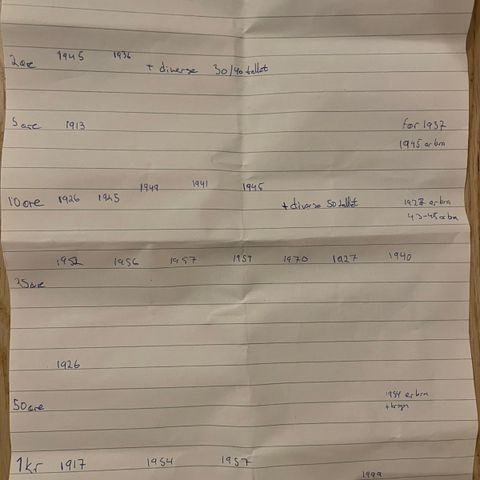 2 øre 1945 1936 + diverse 30/40 tallet
5 øre 1913 før 1937
1945 er bra
1949 1941 1945
10 øre 1926 1945 + diverse 50 tallet 1927 er bra
43-45 er bra
1952 1956 1957 1959 1970 1927 1940
25 øre
1926
1954 er bra
50 øre
1 kr 1917 1954 1957
1999